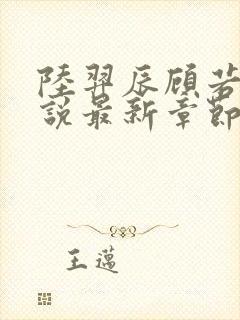 陸羿辰顧若
說最新章節
王邁